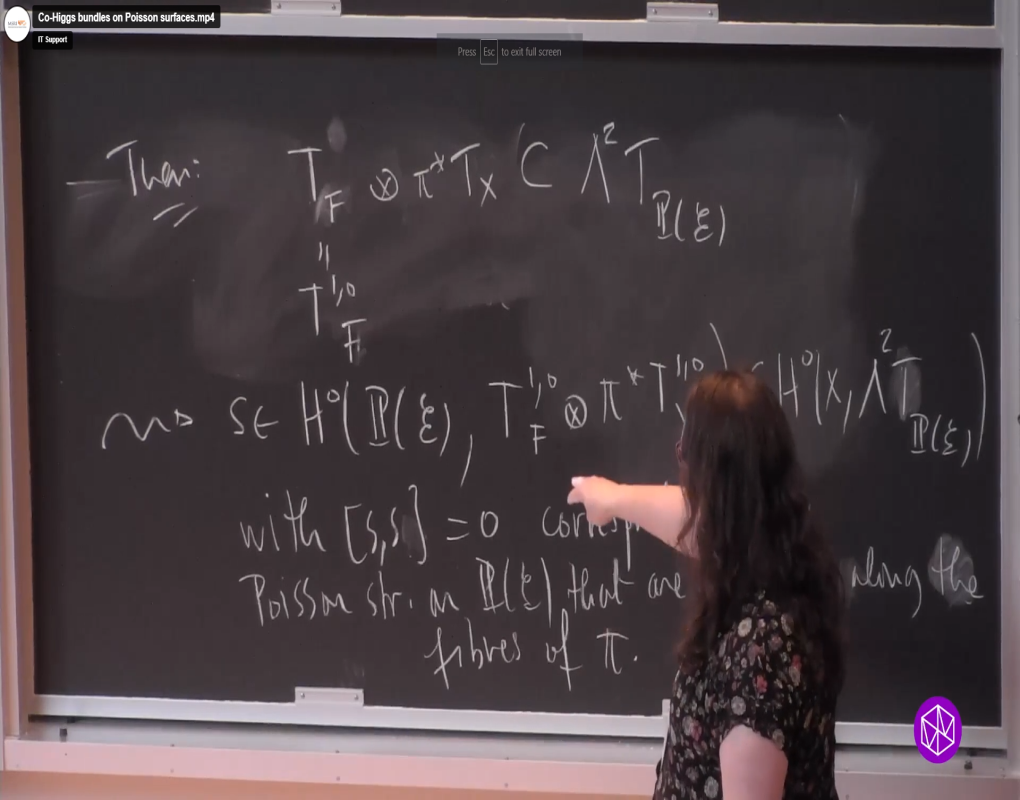 Co-Higgs bundles on Poisson surfaces.mp4
IT Support
Press Esc to exit full screen
Then: T_F ⊗ π*T_X ⊂ Λ²T_{ℙ(ℰ)}
"
T^{1,0}_F
⇝ s∈ H⁰(ℙ(ℰ), T^{1,0}_F ⊗ π*T^{1,0}) H⁰(X, Λ²T_{ℙ(ℰ)})
with [s,s] = 0
Poisson str. on ℙ(ℰ) that are along the
fibres of π.